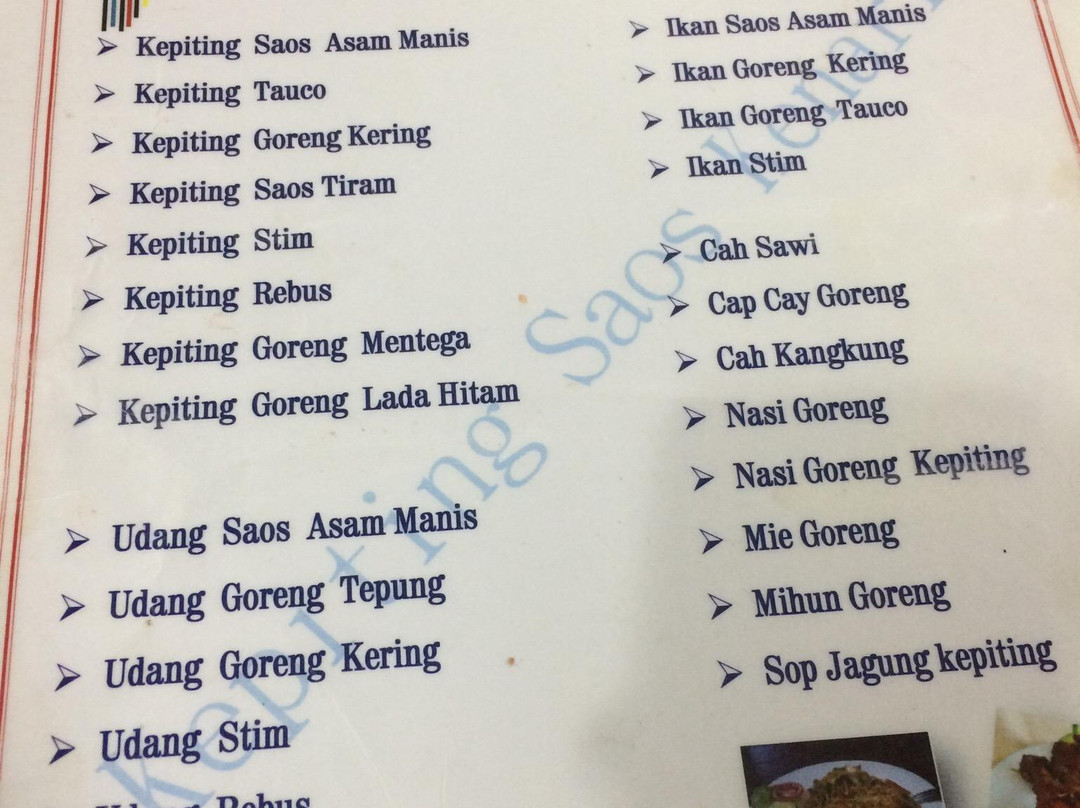 Kepiting Saos Asam Manis
Kepiting Tauco
Kepiting Goreng Kering
Kepiting Saos Tiram
Kepiting Stim
Kepiting Rebus
Kepiting Goreng Mentega
Kepiting Goreng Lada Hitam
Udang Saos Asam Manis
Udang Goreng Tepung
Udang Goreng Kering
Udang Stim
Udang Rebus
Ikan Saos Asam Manis
Ikan Goreng Kering
Ikan Goreng Tauco
Ikan Stim
Cah Sawi
Cap Cay Goreng
Cah Kangkung
Nasi Goreng
Nasi Goreng Kepiting
Mie Goreng
Mihun Goreng
Sop Jagung kepiting
Kepiting Saos